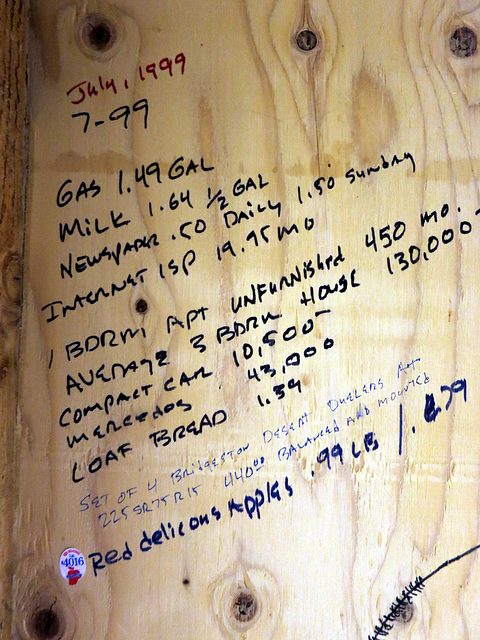 July, 1999
7-99
GAS 1.49 GAL
MILK 1.64 1/2 GAL
NEWSPAPER .50 DAILY 1.50 SUNDAY
INTERNET ISP 19.95 MO
1 BDRM APT UNFURNISHED 450 MO.
AVERAGE 3 BDRM HOUSE 130,000
COMPACT CAR 10,500
MERCEDES 43,000
LOAF BREAD 1.39
SET OF 4 BRIDGESTON DESERT DUELERS AT
225SR75R15 440.00 BALANCED AND MOUNTED
Red delicous Apples .99 LB
#4016